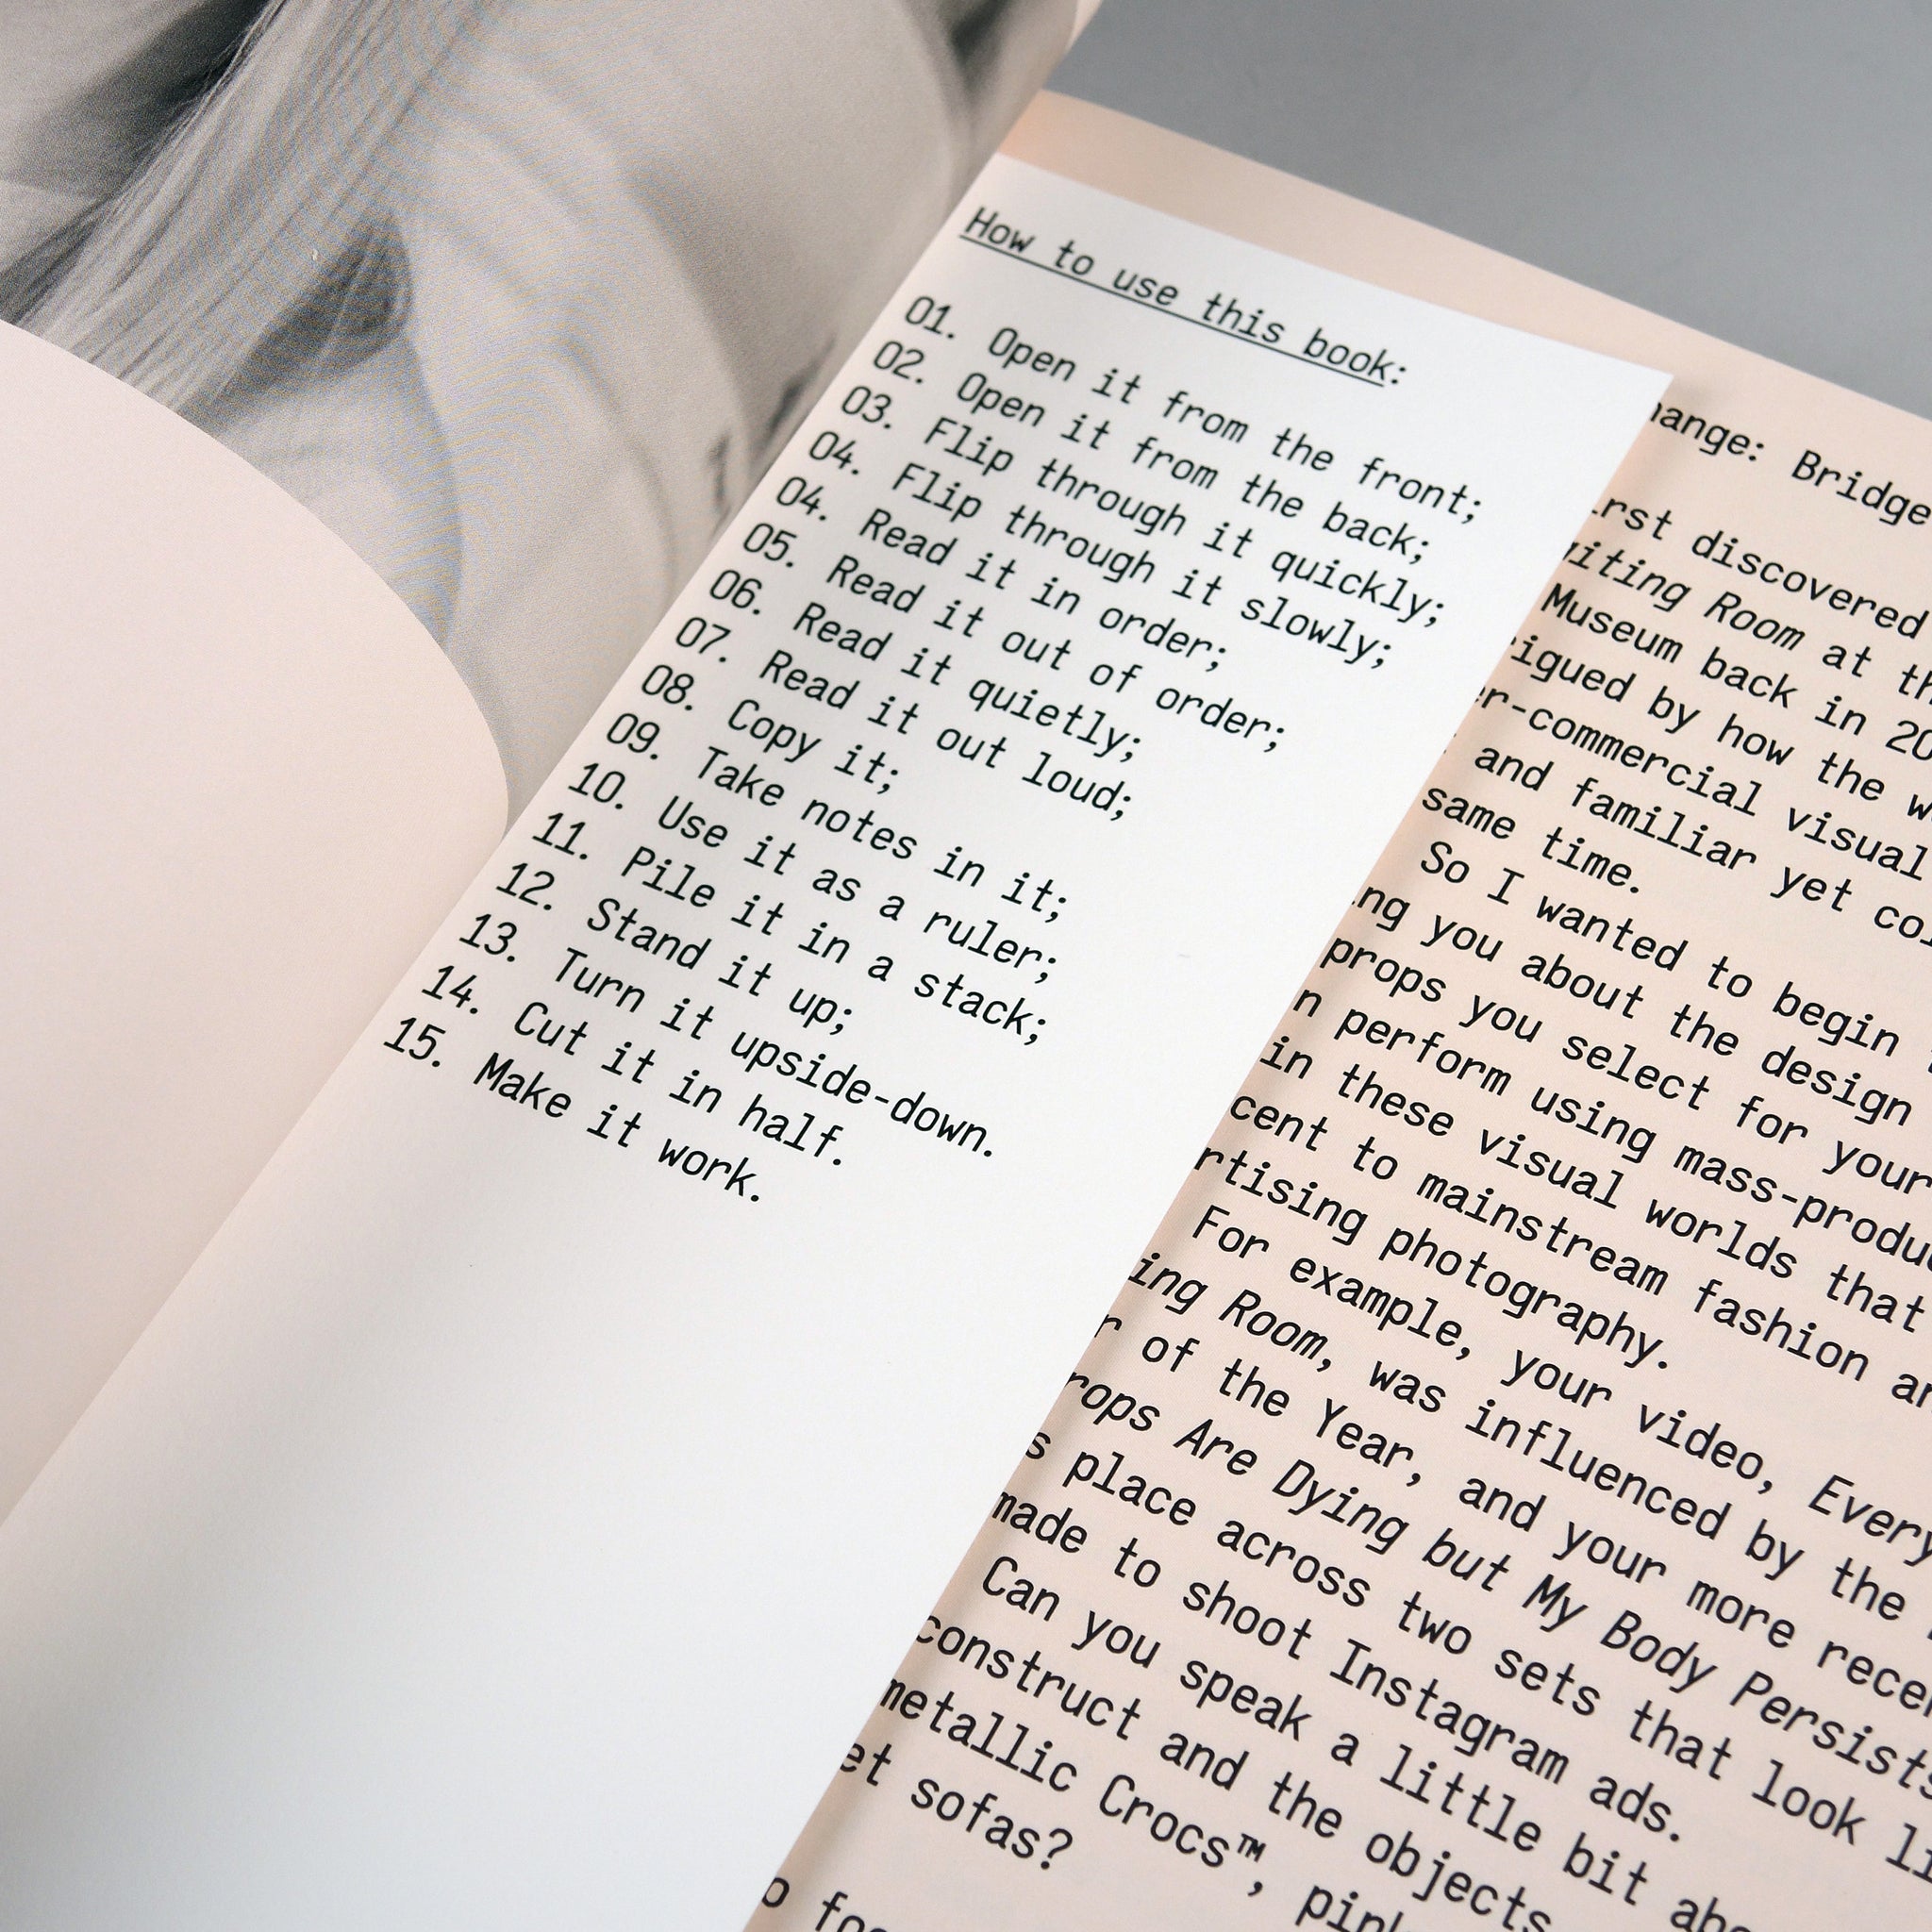 How to use this book:
01. Open it from the front;
02. Open it from the back;
03. Flip through it quickly;
04. Flip through it slowly;
04. Read it in order;
05. Read it out of order;
06. Read it quietly;
07. Read it out loud;
08. Copy it;
09. Take notes in it;
10. Use it as a ruler;
11. Pile it in a stack;
12. Stand it up;
13. Turn it upside-down.
14. Cut it in half.
15. Make it work.
hange: Bridge
rst discovered
iting Room at th
Museum back in 20
igued by how the w
er-commercial visual
and familiar yet co
same time.
So I wanted to begin
ng you about the design
props you select for your
n perform using mass-produ
in these visual worlds that
cent to mainstream fashion a
rtising photography.
For example, your video, Every
ing Room, was influenced by the
r of the Year, and your more rece
rops Are Dying but My Body Persists
s place across two sets that look li
made to shoot Instagram ads.
Can you speak a little bit abo
construct and the objects
metallic Crocs™, pink
et sofas?